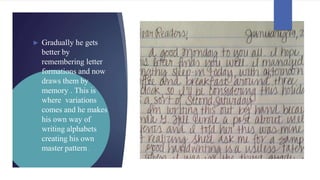 Gradually he gets
better by
remembering letter
formations and now
draws them by
memory . This is
where variations
comes and he makes
his own way of
writing alphabets
creating his own
master pattern
Readers,
a good monday to you all. I hope
letter finds you well. I managed
step in today, with afternoon
and breakfast around three.
so I'll be considering this holiday
a sort of Second Saturday!
am writing this out by hand because
a post about
and I told her this was mine
she'd ask me for a
good handwriting is a useless